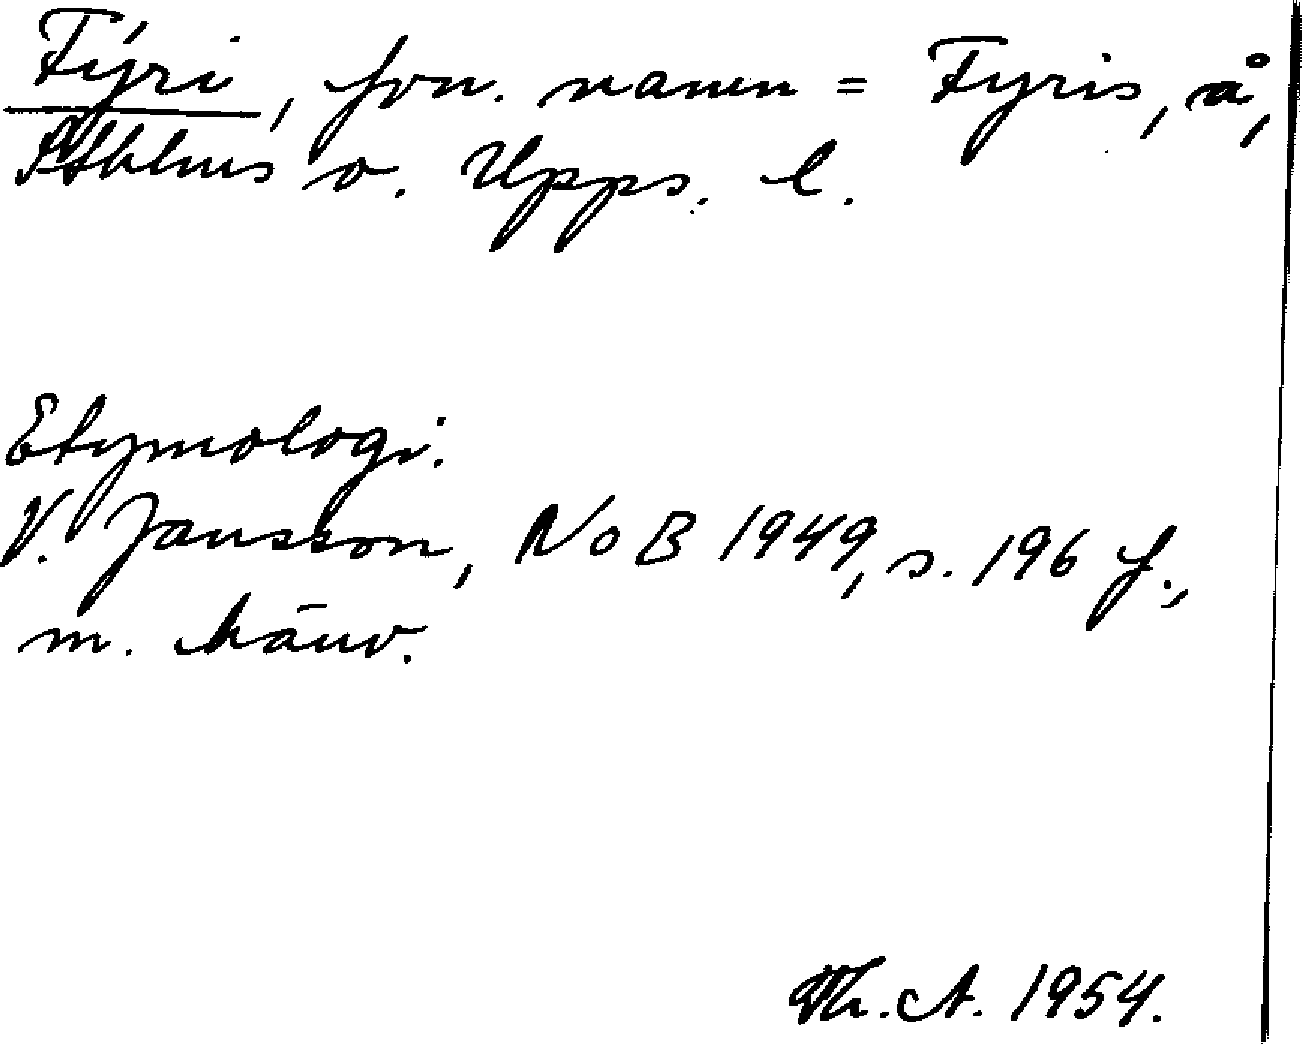 Fýri, fvn. namn = Fyris, å,
Sthlms o. Upps. l.
Etymologi.
V. Jansson, NoB 1949, s. 196 f.,
m. hänv.
Th. A. 1954.